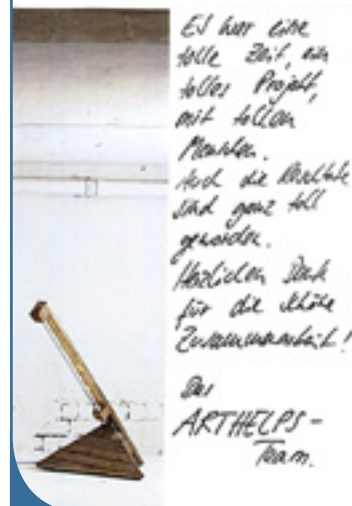 Es war eine
tolle Zeit, ein
tolles Projekt,
mit tollen
Menschen.
Auch die Resultate
sind ganz toll
geworden.
Herzlichen Dank
für die schöne
Zusammenarbeit!
Das
ARTHELPS-
Team.